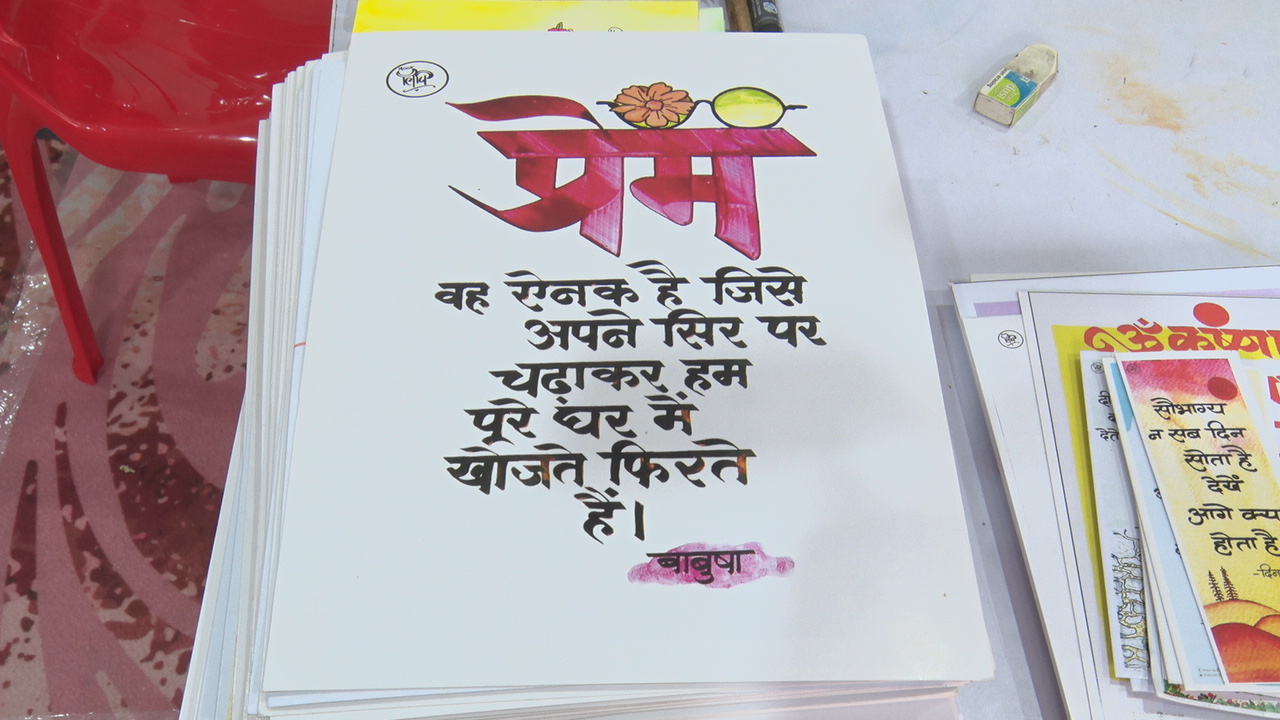 लिपि
प्रेम
वह ऐनक है जिसे
अपने सिर पर
चढ़ाकर हम
पूरे घर में
खोजते फिरते
हैं।
बाबुषा
ॐ कृष्णा
सौभाग्य
न सब दिन
सोता है
देखें
आगे क्या
होता है
-दिन